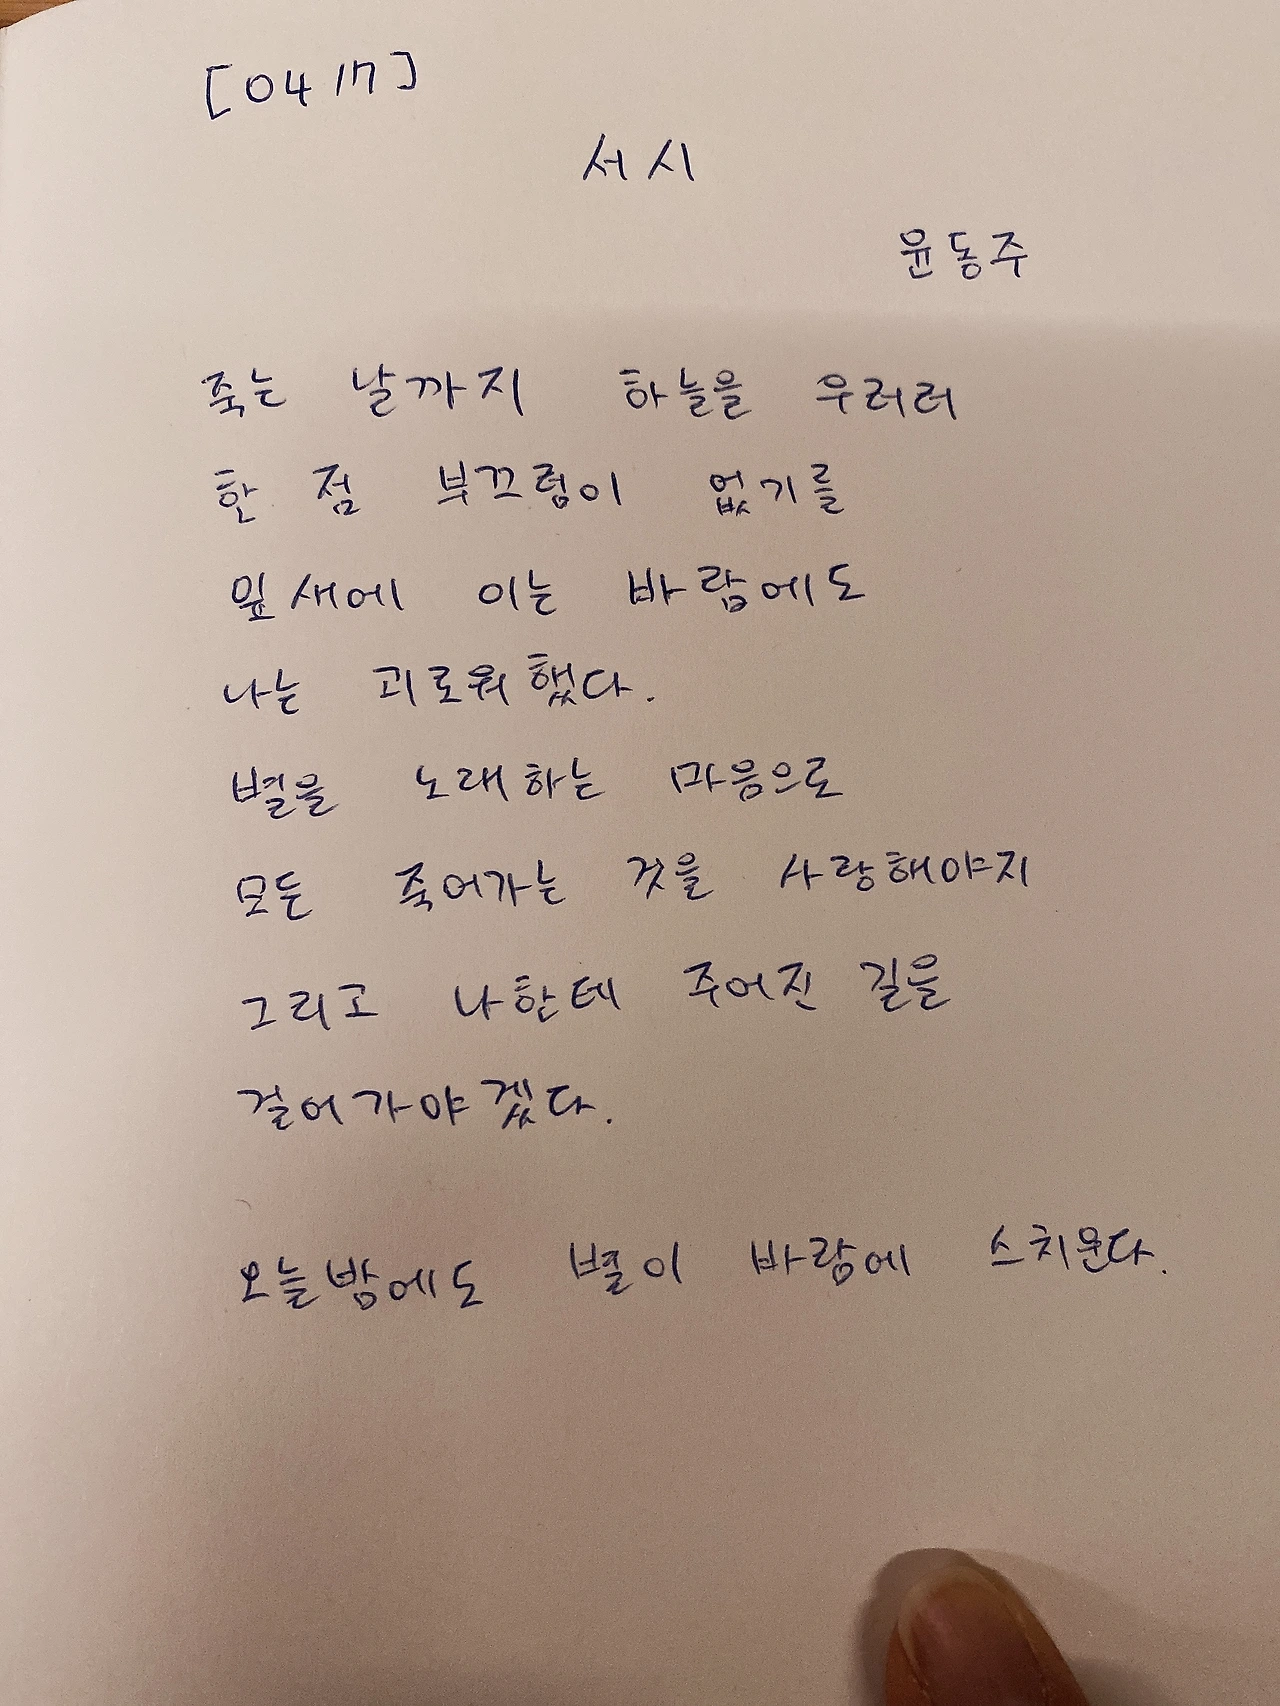 [0417]
서시
윤동주
죽는 날까지 하늘을 우러러
한 점 부끄럼이 없기를
잎새에 이는 바람에도
나는 괴로워했다.
별을 노래하는 마음으로
모든 죽어가는 것을 사랑해야지
그리고 나한테 주어진 길을
걸어가야겠다.
오늘밤에도 별이 바람에 스치운다.